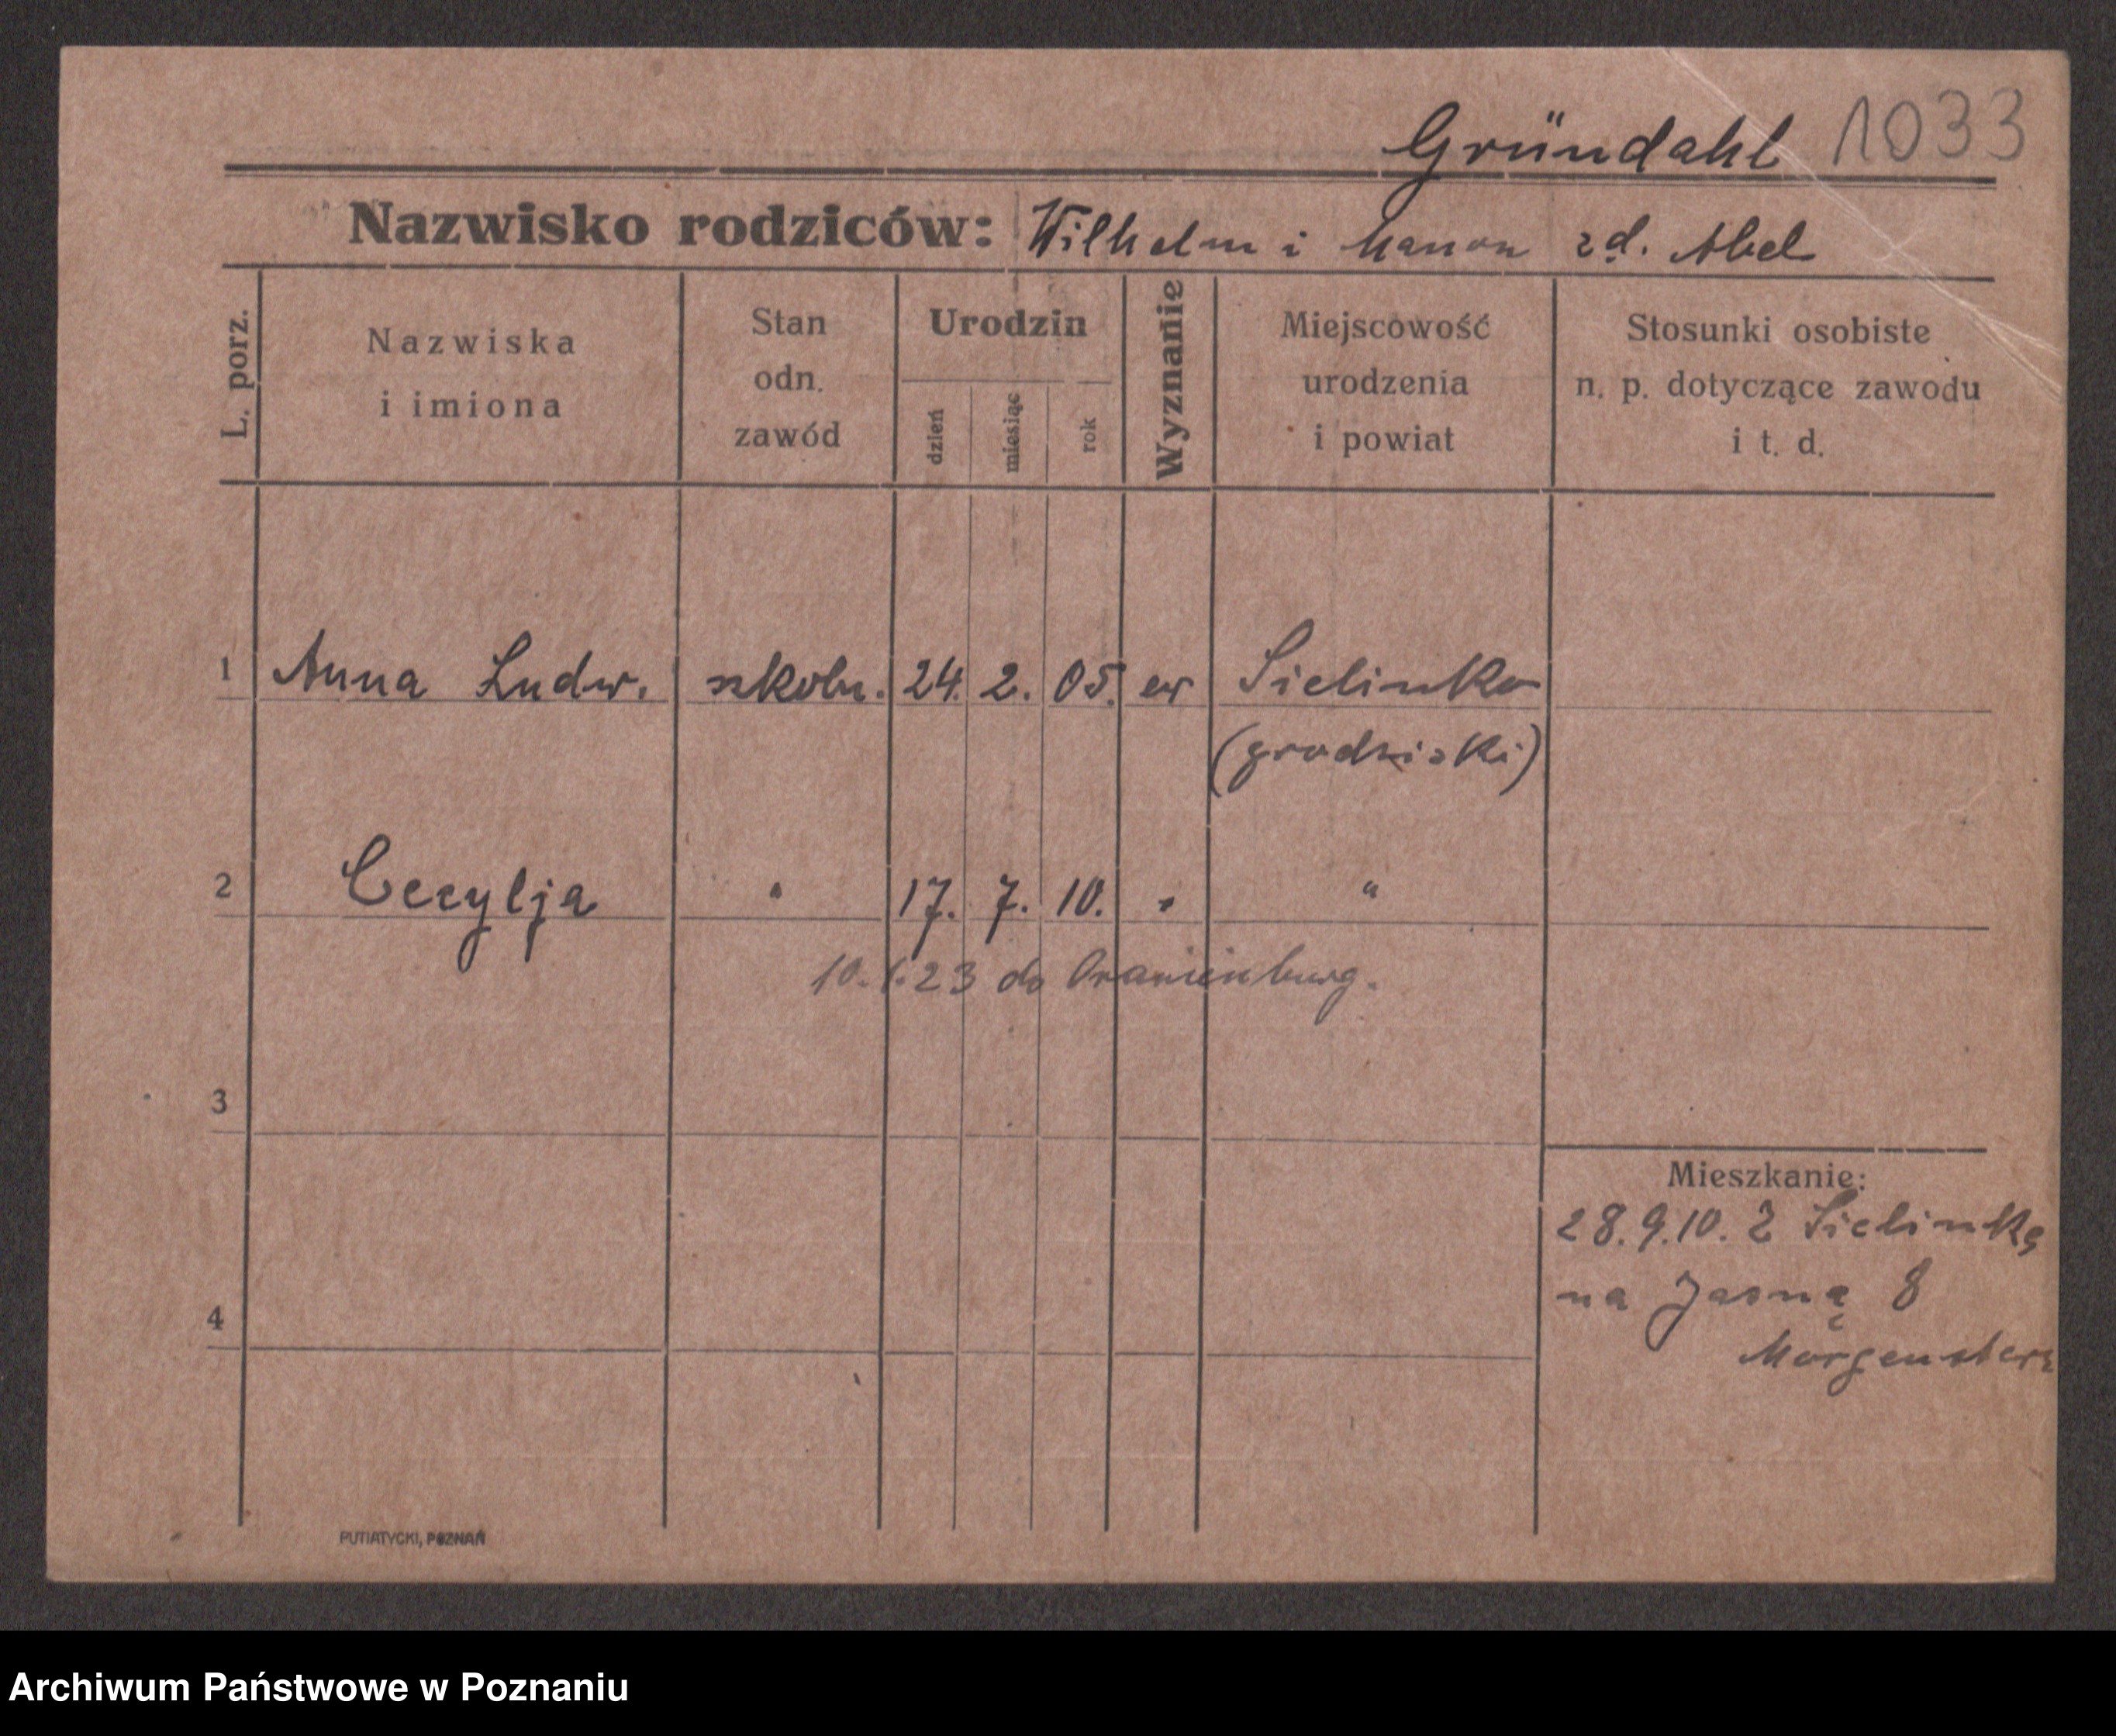 Gründahl 1033
Nazwisko rodziców: Wilhelm i Manon zd. Abel
L. porz.
Nazwiska
i imiona
Stan
odn.
zawód
Urodzin
dzień
miesiąc
rok
Wyznanie
Miejscowość
urodzenia
i powiat
Stosunki osobiste
n. p. dotyczące zawodu
i t. d.
1 Anna Ludw. szkoln. 24. 2. 05. ew Sielinko
(grodziski)
2 Cecylja " 17. 7. 10. " "
10. 1. 23 do Oranienburg.
3
Mieszkanie:
28. 9. 10. Z Sielinka
4
na Jasną 8
Morgenstern
PUTIATYCKI, POZNAŃ
Archiwum Państwowe w Poznaniu